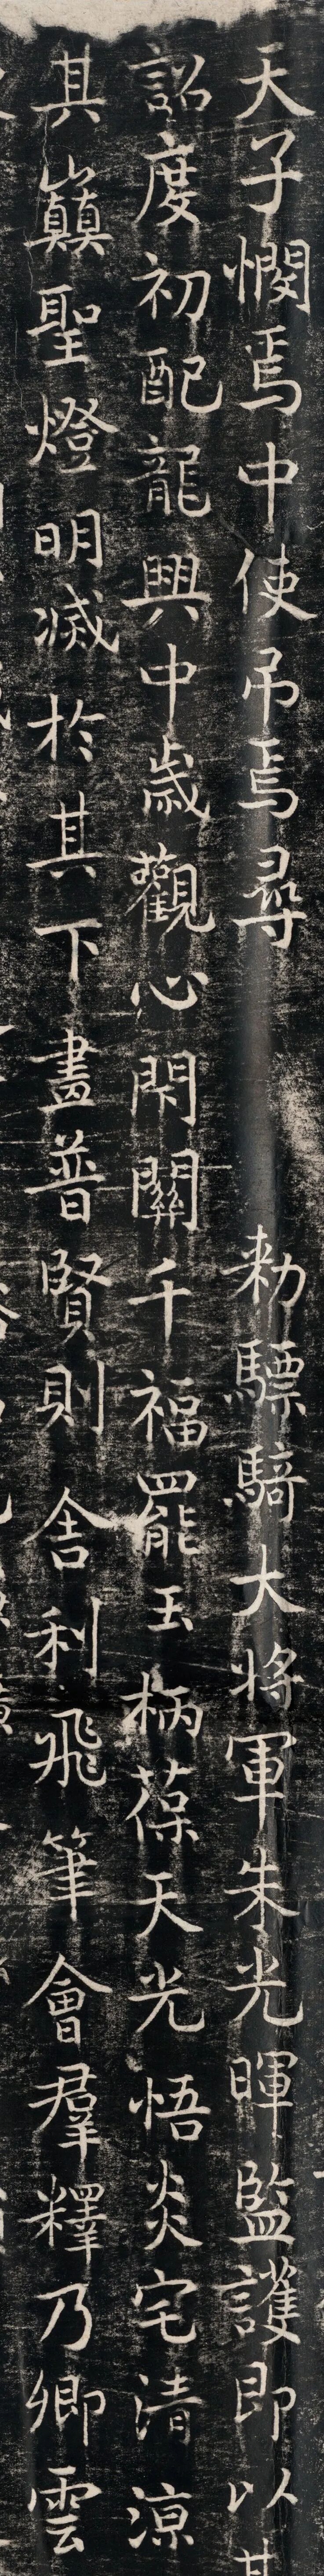 天子憫焉中使吊焉尋勑驃騎大将軍朱光暉監護即以其
詔度初配龍興中歲觀心閇關千福罷玉柄葆天光悟炎宅清涼
其巔聖燈明滅於其下畫普賢則舍利飛筆會羣釋乃卿雲